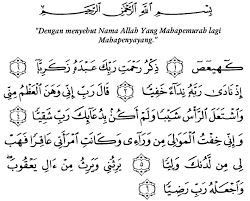 بِسْمِ اللَّهِ الرَّحْمَٰنِ الرَّحِيمِ
"Dengan menyebut Nama Allah Yang Mahapemurah lagi
Mahapenyayang."
كٓهيعٓصٓ ۝ ذِكْرُ رَحْمَتِ رَبِّكَ عَبْدَهُ زَكَرِيَّا ۝
إِذْ نَادَىٰ رَبَّهُ نِدَاءً خَفِيًّا ۝ قَالَ رَبِّ إِنِّي وَهَنَ الْعَظْمُ مِنِّي
وَاشْتَعَلَ الرَّأْسُ شَيْبًا وَلَمْ أَكُنْ بِدُعَائِكَ رَبِّ شَقِيًّا ۝
وَإِنِّي خِفْتُ الْمَوَالِيَ مِنْ وَرَائِي وَكَانَتِ امْرَأَتِي عَاقِرًا فَهَبْ
لِي مِنْ لَدُنْكَ وَلِيًّا ۝ يَرِثُنِي وَيَرِثُ مِنْ آلِ يَعْقُوبَ
وَاجْعَلْهُ رَبِّ رَضِيًّا ۝